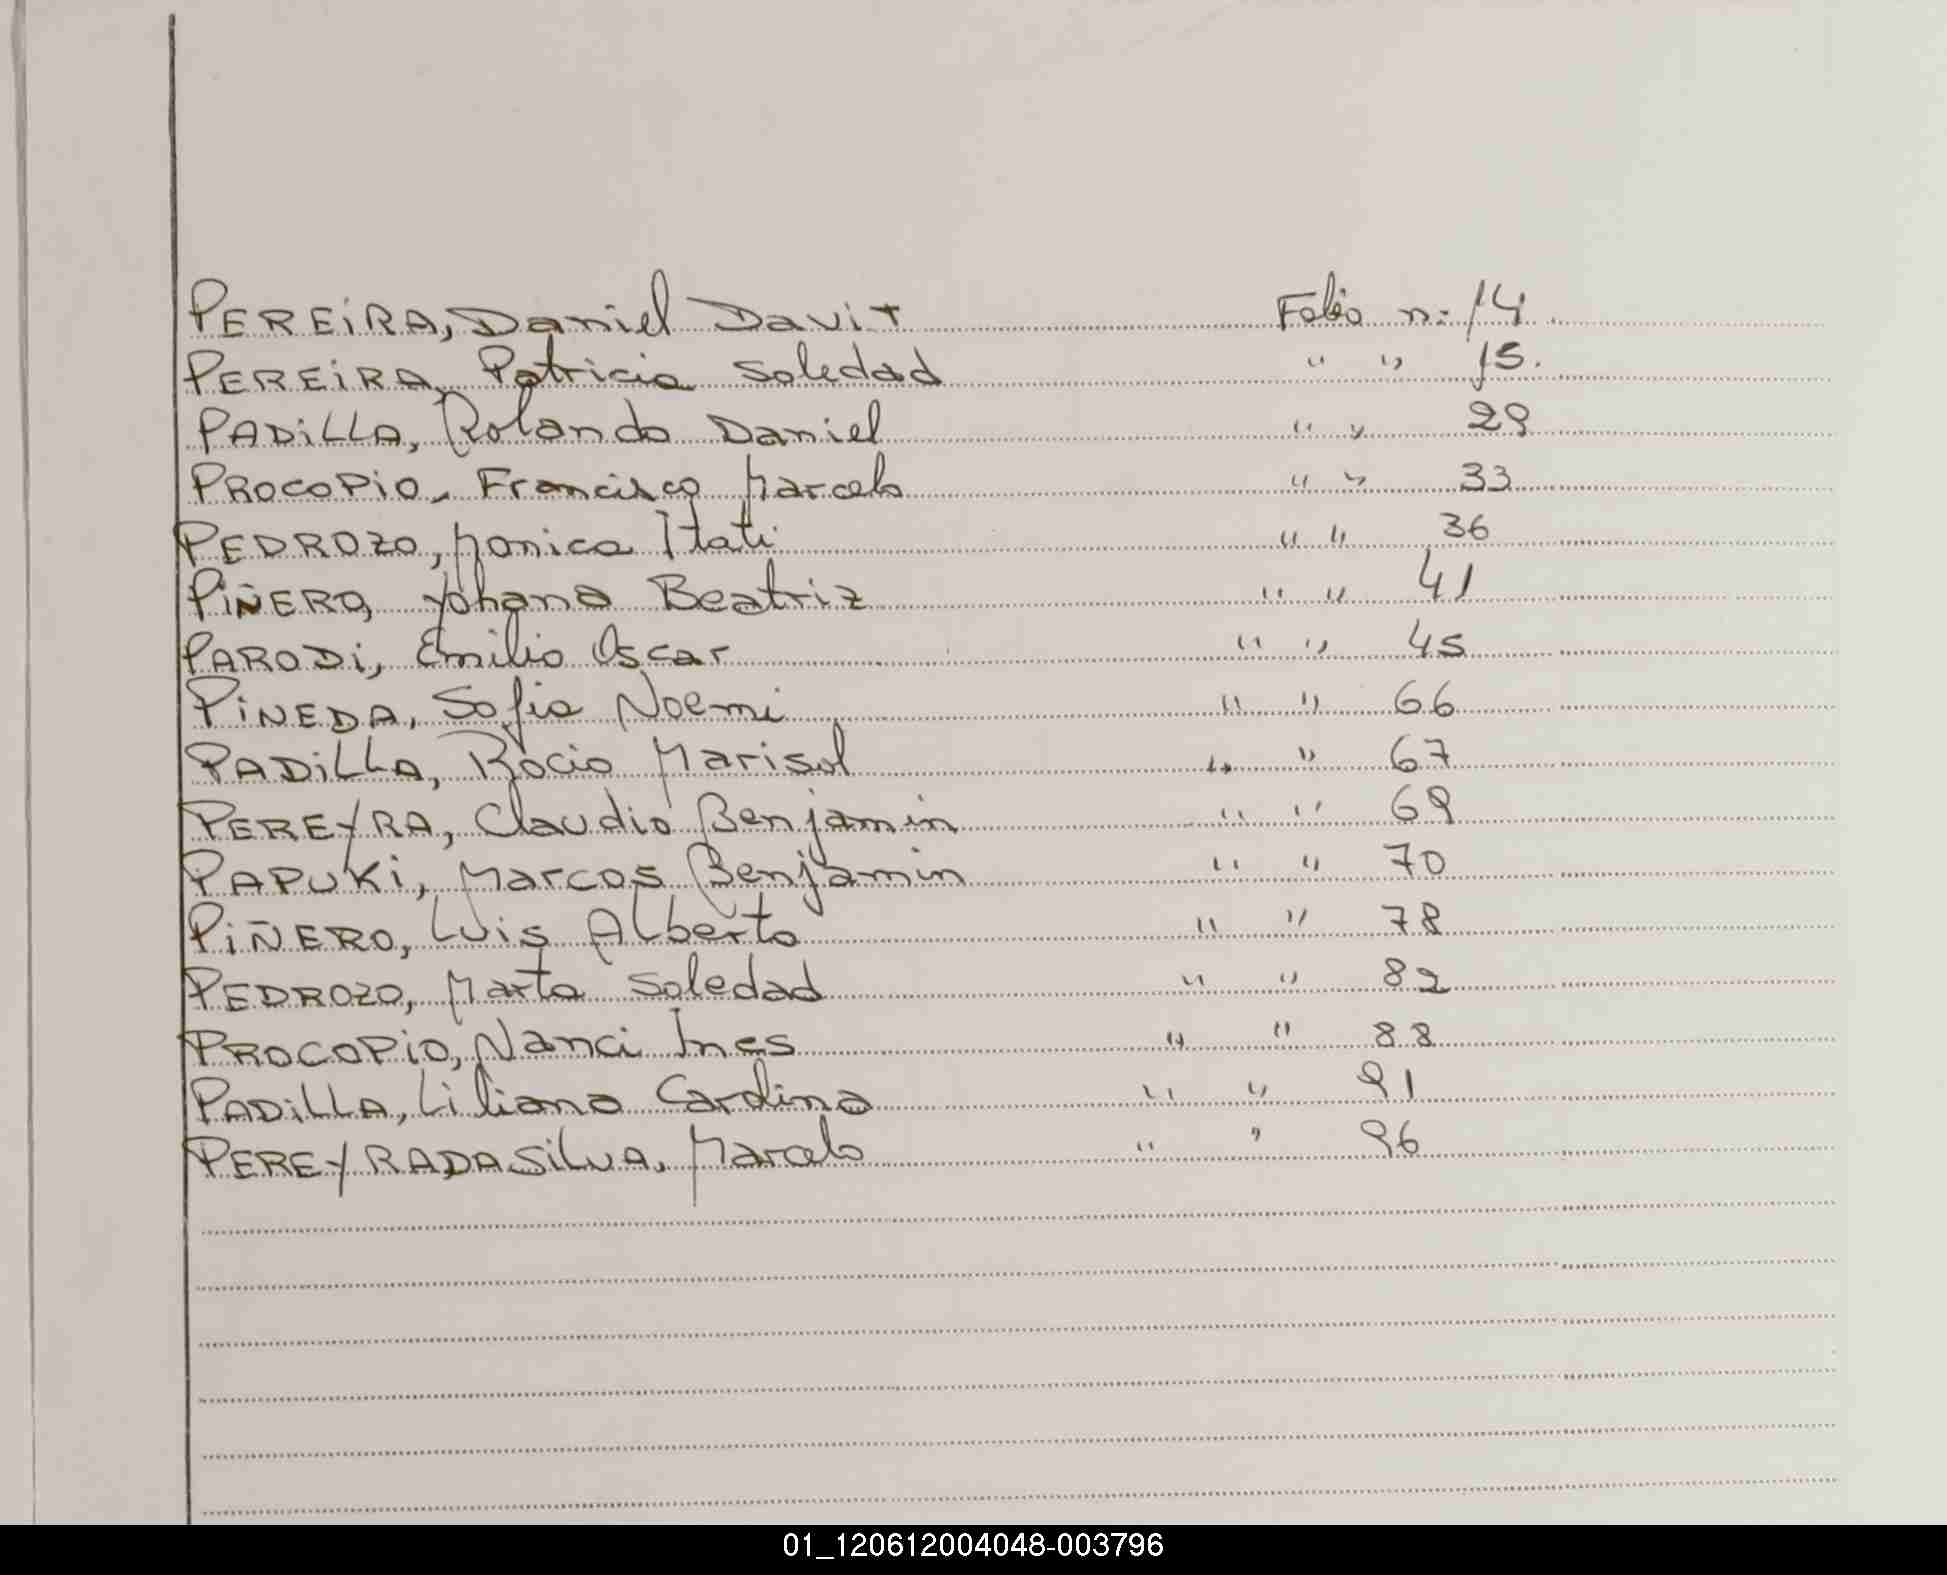 PEREIRA, Daniel Davit Folio n: 14.
PEREIRA, Patricia Soledad " " 15.
PADILLA, Rolando Daniel " " 29
PROCOPIO, Francisco Marcelo " " 33
PEDROZO, Monica Itati " " 36
PIÑERO, Yohana Beatriz " " 41
PARODI, Emilio Oscar " " 45
PINEDA, Sofia Noemi " " 66
PADILLA, Rocio Marisol " " 67
PEREYRA, Claudio Benjamin " " 69
PAPUKI, Marcos Benjamin " " 70
PIÑERO, Luis Alberto " " 78
PEDROZO, Marta Soledad " " 82
PROCOPIO, Nanci Ines " " 88
PADILLA, Liliana Cardina " " 91
PEREYRADASILVA, Marcelo " " 96
01_120612004048-003796